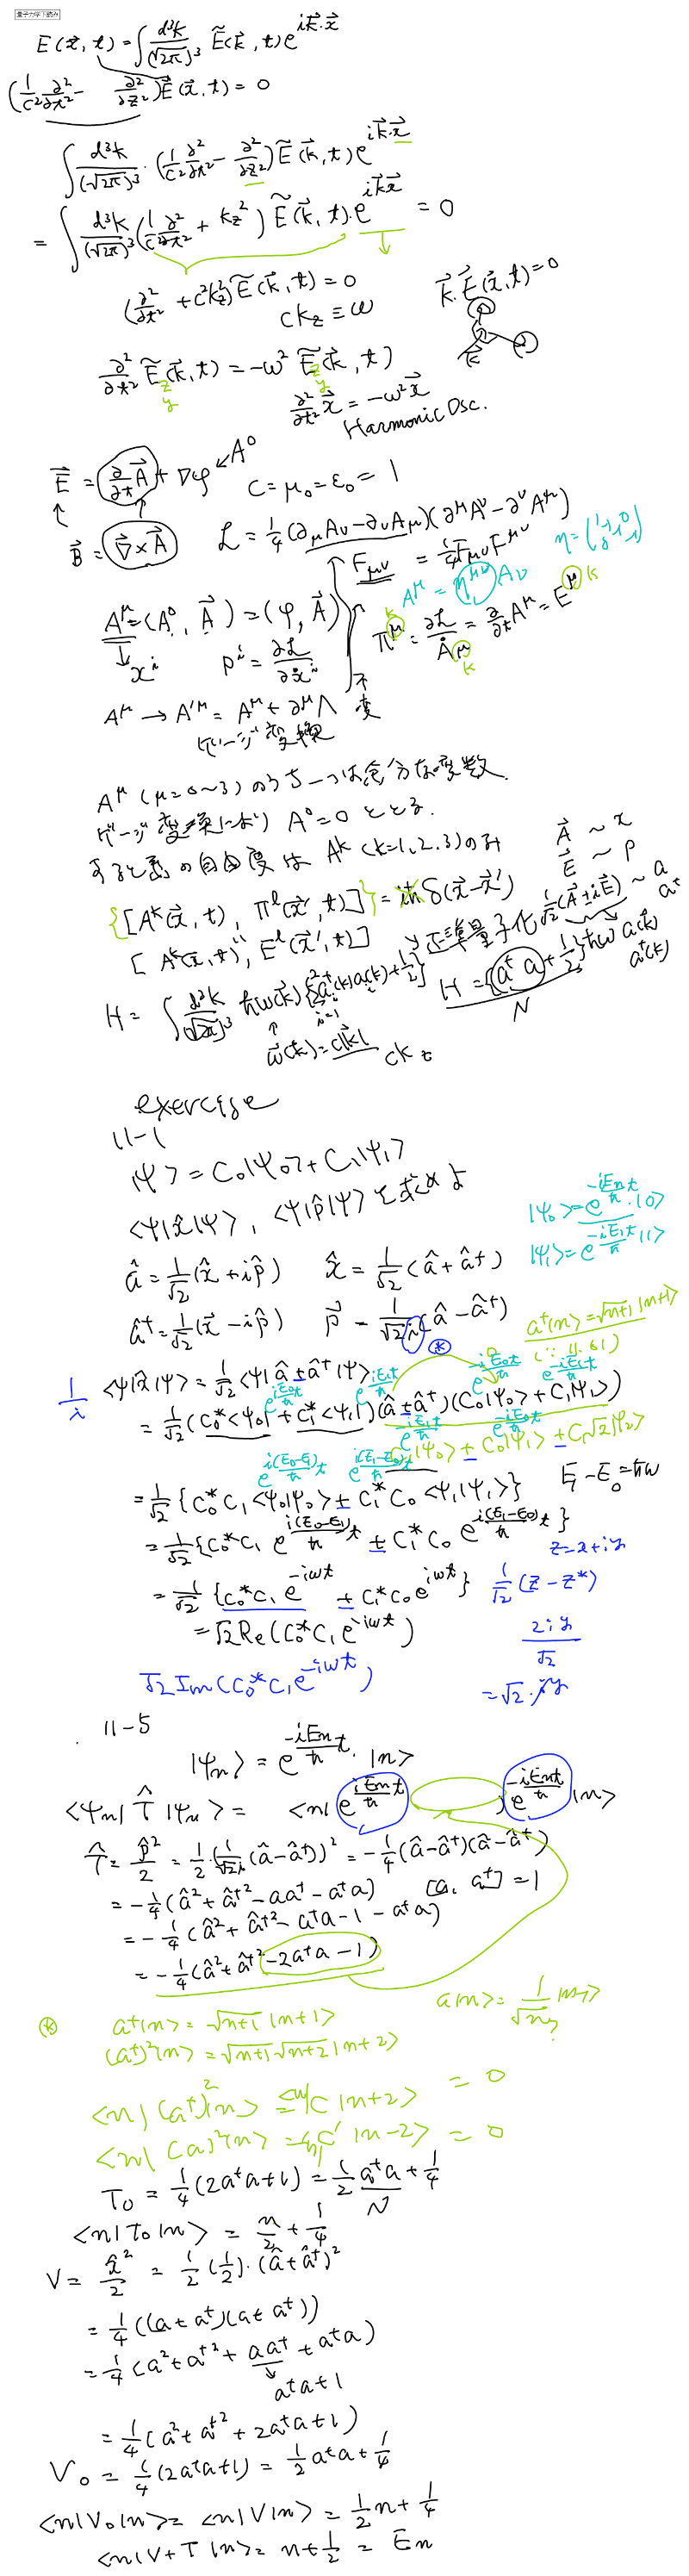 量子力学下読み
E(x⃗, t) = ∫ d³k/(√2π)³ Ẽ(k⃗, t) e^{ik⃗·x⃗}
(1/c² ∂²/∂t² − ∂²/∂z²) E⃗(x⃗, t) = 0
∫ d³k/(√2π)³ · (1/c² ∂²/∂t² − ∂²/∂z²) Ẽ(k⃗, t) e^{ik⃗·x⃗}
= ∫ d³k/(√2π)³ (1/c² ∂²/∂t² + kz²) Ẽ(k⃗, t) · e^{ik⃗x⃗} = 0
(∂²/∂t² + c²kz²) Ẽ(k⃗, t) = 0
k⃗·E⃗(x⃗, t) = 0
ckz ≡ ω
k⃗
∂²/∂t² Ẽ(k⃗, t) = −ω² Ẽ(k⃗, t)
z y z y
∂²/∂t² x⃗ = −ω² x⃗
Harmonic Osc.
E⃗ = ∂/∂t A⃗ + ∇φ ↙ A⁰
C = μ₀ = ε₀ = 1
B⃗ = ∇⃗ × A⃗
L = 1/4 (∂μAν − ∂νAμ)(∂^μA^ν − ∂^νA^μ)
Fμν = 1/4 Fμν F^μν
A^μ = η^{μν} Aν
A^μ = (A⁰, A⃗) = (φ, A⃗)
Π^μ = ∂L/Ȧμ = ∂/∂t A^μ = E^μ
k k k
x^i
p^i = ∂L/∂ẋ^i
A^μ → A'^μ = A^μ + ∂^μ Λ 不変
ゲージ変換
A^μ (μ=0~3) のうち一つは余分な変数.
ゲージ変換により A⁰=0 ととる.
すると系の自由度は A^k (k=1,2,3) のみ
A⃗ ~ x
E⃗ ~ p
{[A^k(x⃗, t), Π^l(x⃗', t)]} = iħ δ(x⃗−x⃗')
[A^k(x, t), E^l(x⃗', t)]
正準量子化
1/√2 (A⃗ ± iE⃗) ~ a a†
a(k) a†(k)
H = ∫ d³k/(√2π)³ ħω(k⃗) {Σ a†(k)a(k) + 1/2}
i=1
H = {a†a + 1/2} ħω
N
ω(k) = c|k| ck
exercise
11-1
|ψ> = C₀|ψ₀> + C₁|ψ₁>
<ψ|x̂|ψ>, <ψ|p̂|ψ> を求めよ
|ψ₀> = e^{−iEnt/ħ} · |0>
|ψ₁> = e^{−iE₁t/ħ} |1>
â = 1/√2 (x̂ + ip̂) x̂ = 1/√2 (â + â†)
â† = 1/√2 (x⃗ − ip̂) p⃗ = 1/√2i (â − â†)
a†|n> = √n+1 |n+1>
(∵ 11.61)
1/i
<ψ|x̂|ψ> = 1/√2 <ψ| â ± â† |ψ>
e^{iE₀t/ħ} e^{iE₁t/ħ} e^{−iE₀t/ħ} e^{−iE₁t/ħ}
= 1/√2 (C₀*<ψ₀| + C₁*<ψ₁|)(â ± â†)(C₀|ψ₀> + C₁|ψ₁>)
e^{−iE₁t/ħ} e^{−iE₀t/ħ}
C₁|ψ₀> ± C₀|ψ₁> ± C₁√2|ψ₂>
e^{i(E₀−E₁)t/ħ} e^{i(E₁−E₀)t/ħ}
= 1/√2 {C₀*C₁<ψ₀|ψ₀> ± C₁*C₀<ψ₁|ψ₁>} E₁ − E₀ = ħω
= 1/√2 {C₀*C₁ e^{i(E₀−E₁)/ħ t} ± C₁*C₀ e^{i(E₁−E₀)/ħ t}}
z=x+iy
= 1/√2 {C₀*C₁ e^{−iωt} ± C₁*C₀ e^{iωt}} 1/√2 (z − z*)
= √2 Re(C₀*C₁ e^{−iωt}) 2iy/√2
√2 Im(C₀*C₁ e^{−iωt}) = √2 · iy
11-5
|ψn> = e^{−iEnt/ħ} · |n>
<ψn| T̂ |ψn> = <n| e^{iEnt/ħ} ( ) e^{−iEnt/ħ} |n>
T̂ = p̂²/2 = 1/2 · (1/√2i (â − â†))² = −1/4 (â − â†)(â − â†)
= −1/4 (â² + â†² − aa† − a†a) [a, a†] = 1
= −1/4 (â² + â†² − a†a − 1 − a†a)
= −1/4 (â² + â†² − 2a†a − 1)
a†|n> = √n+1 |n+1>
(a†)²|n> = √n+1 √n+2 |n+2>
a|n> = 1/√n |n-1> ?
<n|(a†)²|n> = <n|C|n+2> = 0
<n|(a)²|n> = <n|C'|n−2> = 0
T₀ = 1/4 (2a†a + 1) = 1/2 a†a + 1/4
N
<n|T₀|n> = n/2 + 1/4
V = x̂²/2 = 1/2 (1/2) · (â + â†)²
= 1/4 ((a + a†)(a + a†))
= 1/4 (a² + a†² + aa† + a†a)
a†a + 1
= 1/4 (a² + a†² + 2a†a + 1)
V₀ = 1/4 (2a†a + 1) = 1/2 a†a + 1/4
<n|V₀|n> = <n|V|n> = 1/2 n + 1/4
<n|V + T|n> = n + 1/2 = En